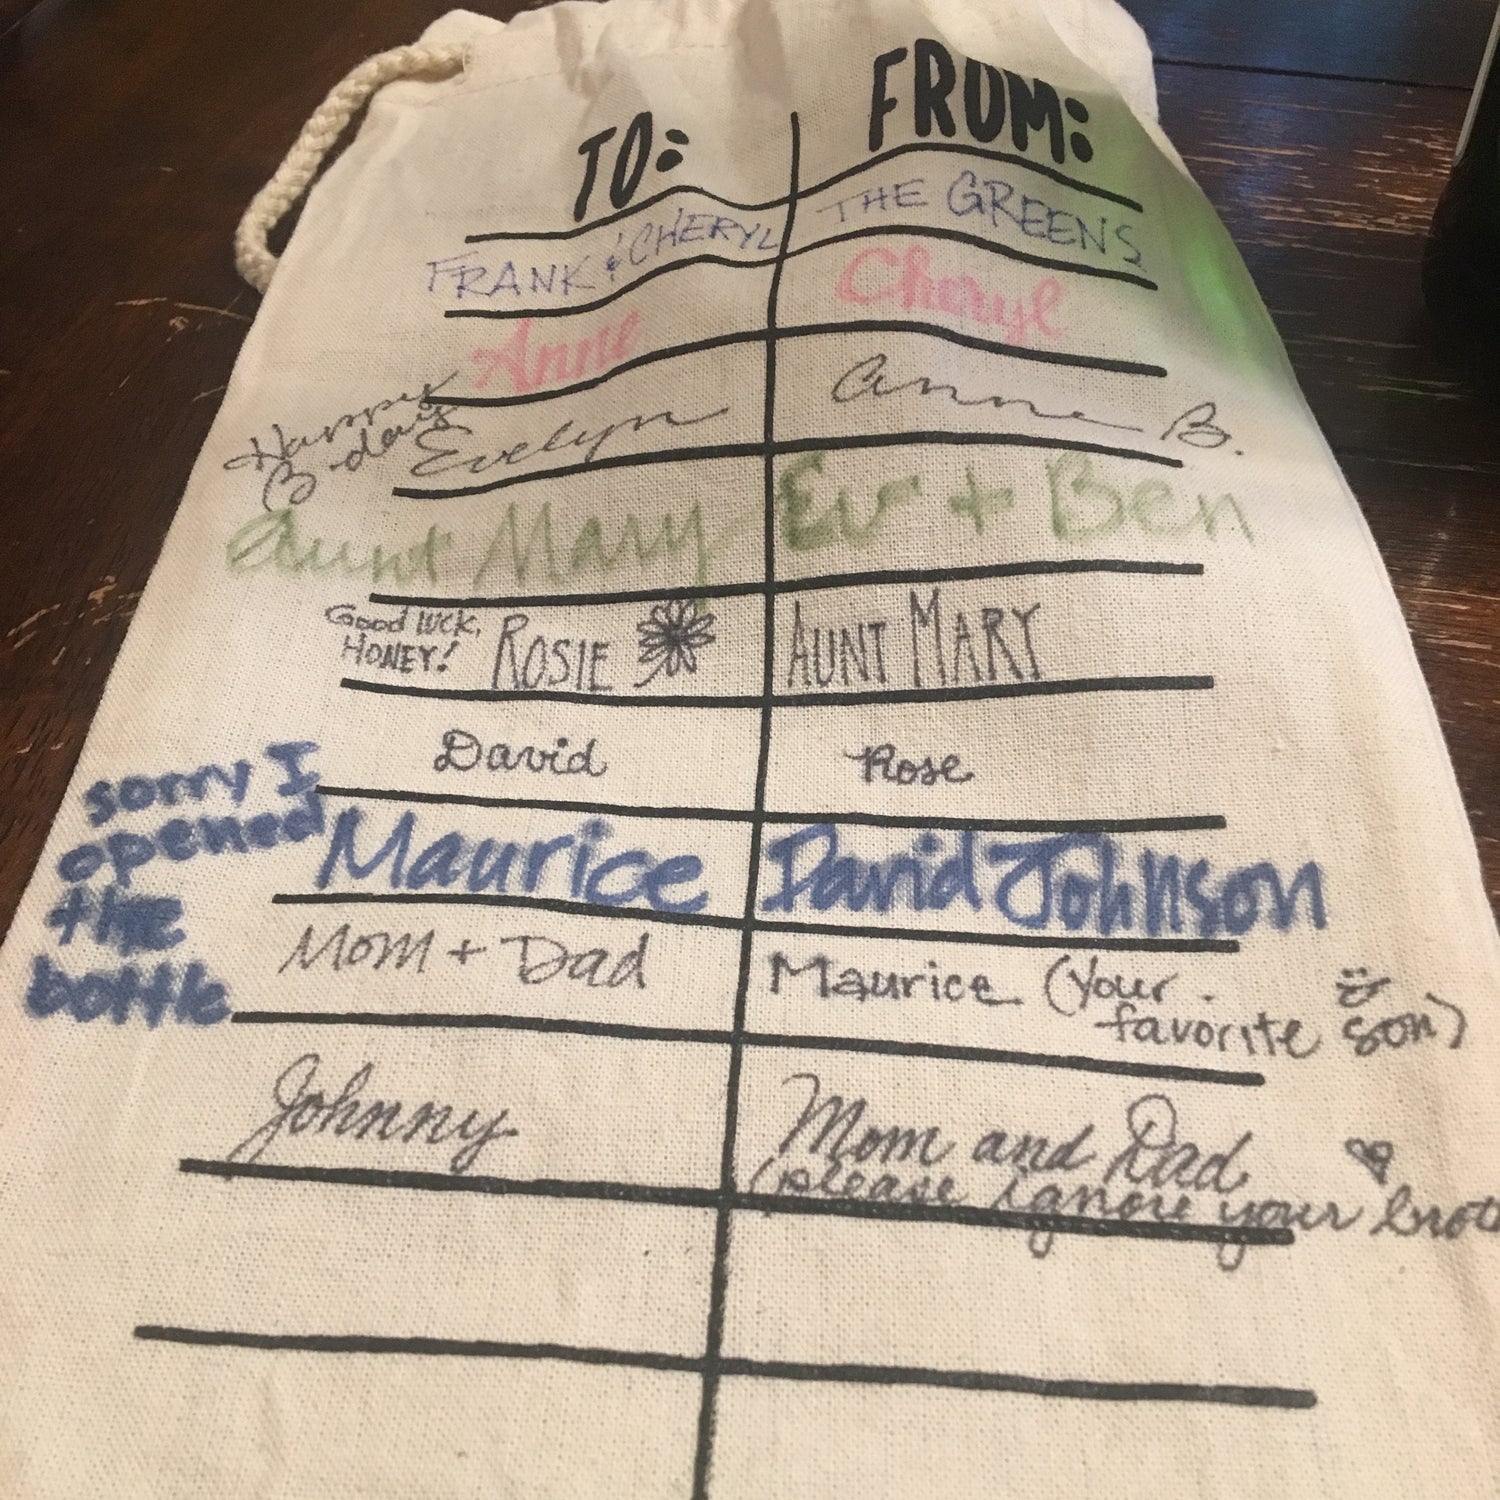 TO: FROM:
FRANK & CHERYL THE GREENS
Anne Cheryl
Happy
B-day Evelyn Anne B.
Aunt Mary Ev + Ben
Good luck,
HONEY! ROSIE AUNT MARY
David Rose
sorry I
opened
the
bottle
Maurice David Johnson
Mom + Dad Maurice (your
favorite son)
Johnny Mom and Dad
(please ignore your